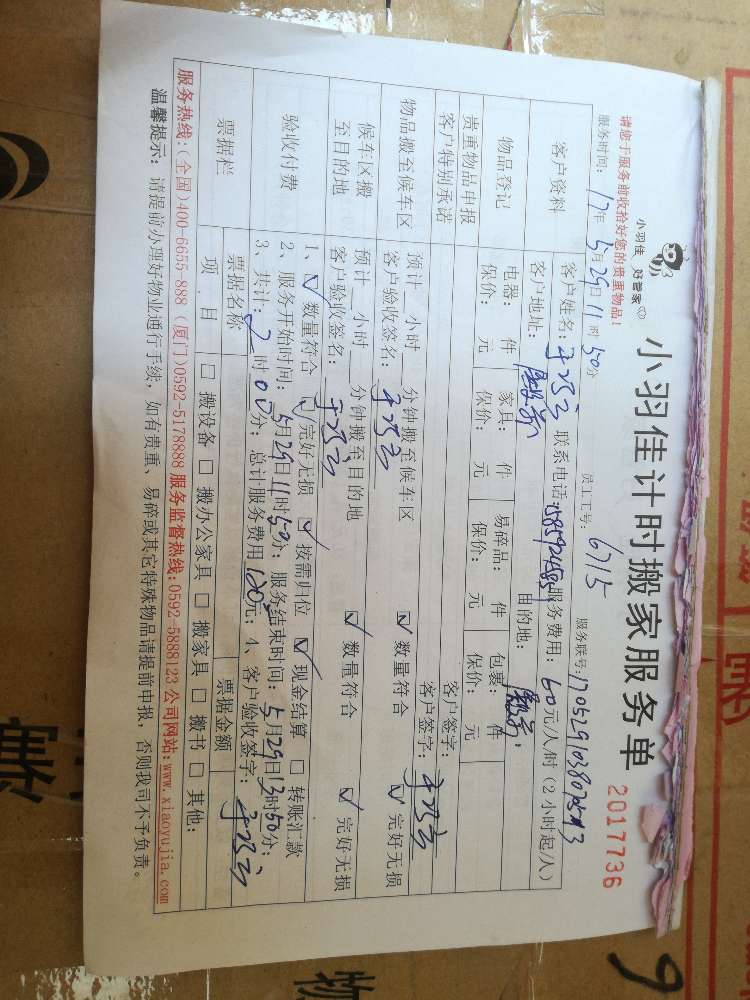 小羽佳 好管家
小羽佳计时搬家服务单
2017736
请您于服务前收拾好您的贵重物品！
服务时间：17年5月29日11时50分 员工工号：6715 服务联号：
客户资料
客户姓名： 联系电话： 服务费用：60元/人/时（2小时起/人）
客户地址： 目的地：
物品登记
电器： 件 家具： 件 易碎品： 件 包裹： 件
保价： 元 保价： 元 保价： 元 保价： 元
贵重物品申报 客户签字：
客户特别承诺 客户签字：
物品搬至候车区
预计 小时 分钟搬至候车区 ☑ 数量符合 ☑ 完好无损
客户验收签名：
候车区搬至目的地
预计 小时 分钟搬至目的地 ☑ 数量符合 ☑ 完好无损
客户验收签名：
验收付费
1、☑ 数量符合 ☑ 完好无损 ☑ 按需归位 ☑ 现金结算 □ 转账汇款
2、服务开始时间：5月29日11时50分；服务结束时间：5月29日13时50分；
3、共计：2时00分；总计服务费用120元；4、客户验收签字：
票据栏
票据名称 票据金额
项 目 □ 搬设备 □ 搬办公家具 □ 搬家具 □ 搬书 □ 其他：
服务热线：(全国)400-6655-888 (厦门)0592-5178888 服务监督热线：0592-5888123 公司网站：www.xiaoyujia.com
温馨提示：请提前办理好物业通行手续，如有贵重、易碎或其它特殊物品请提前申报，否则我司不予负责。
物
9